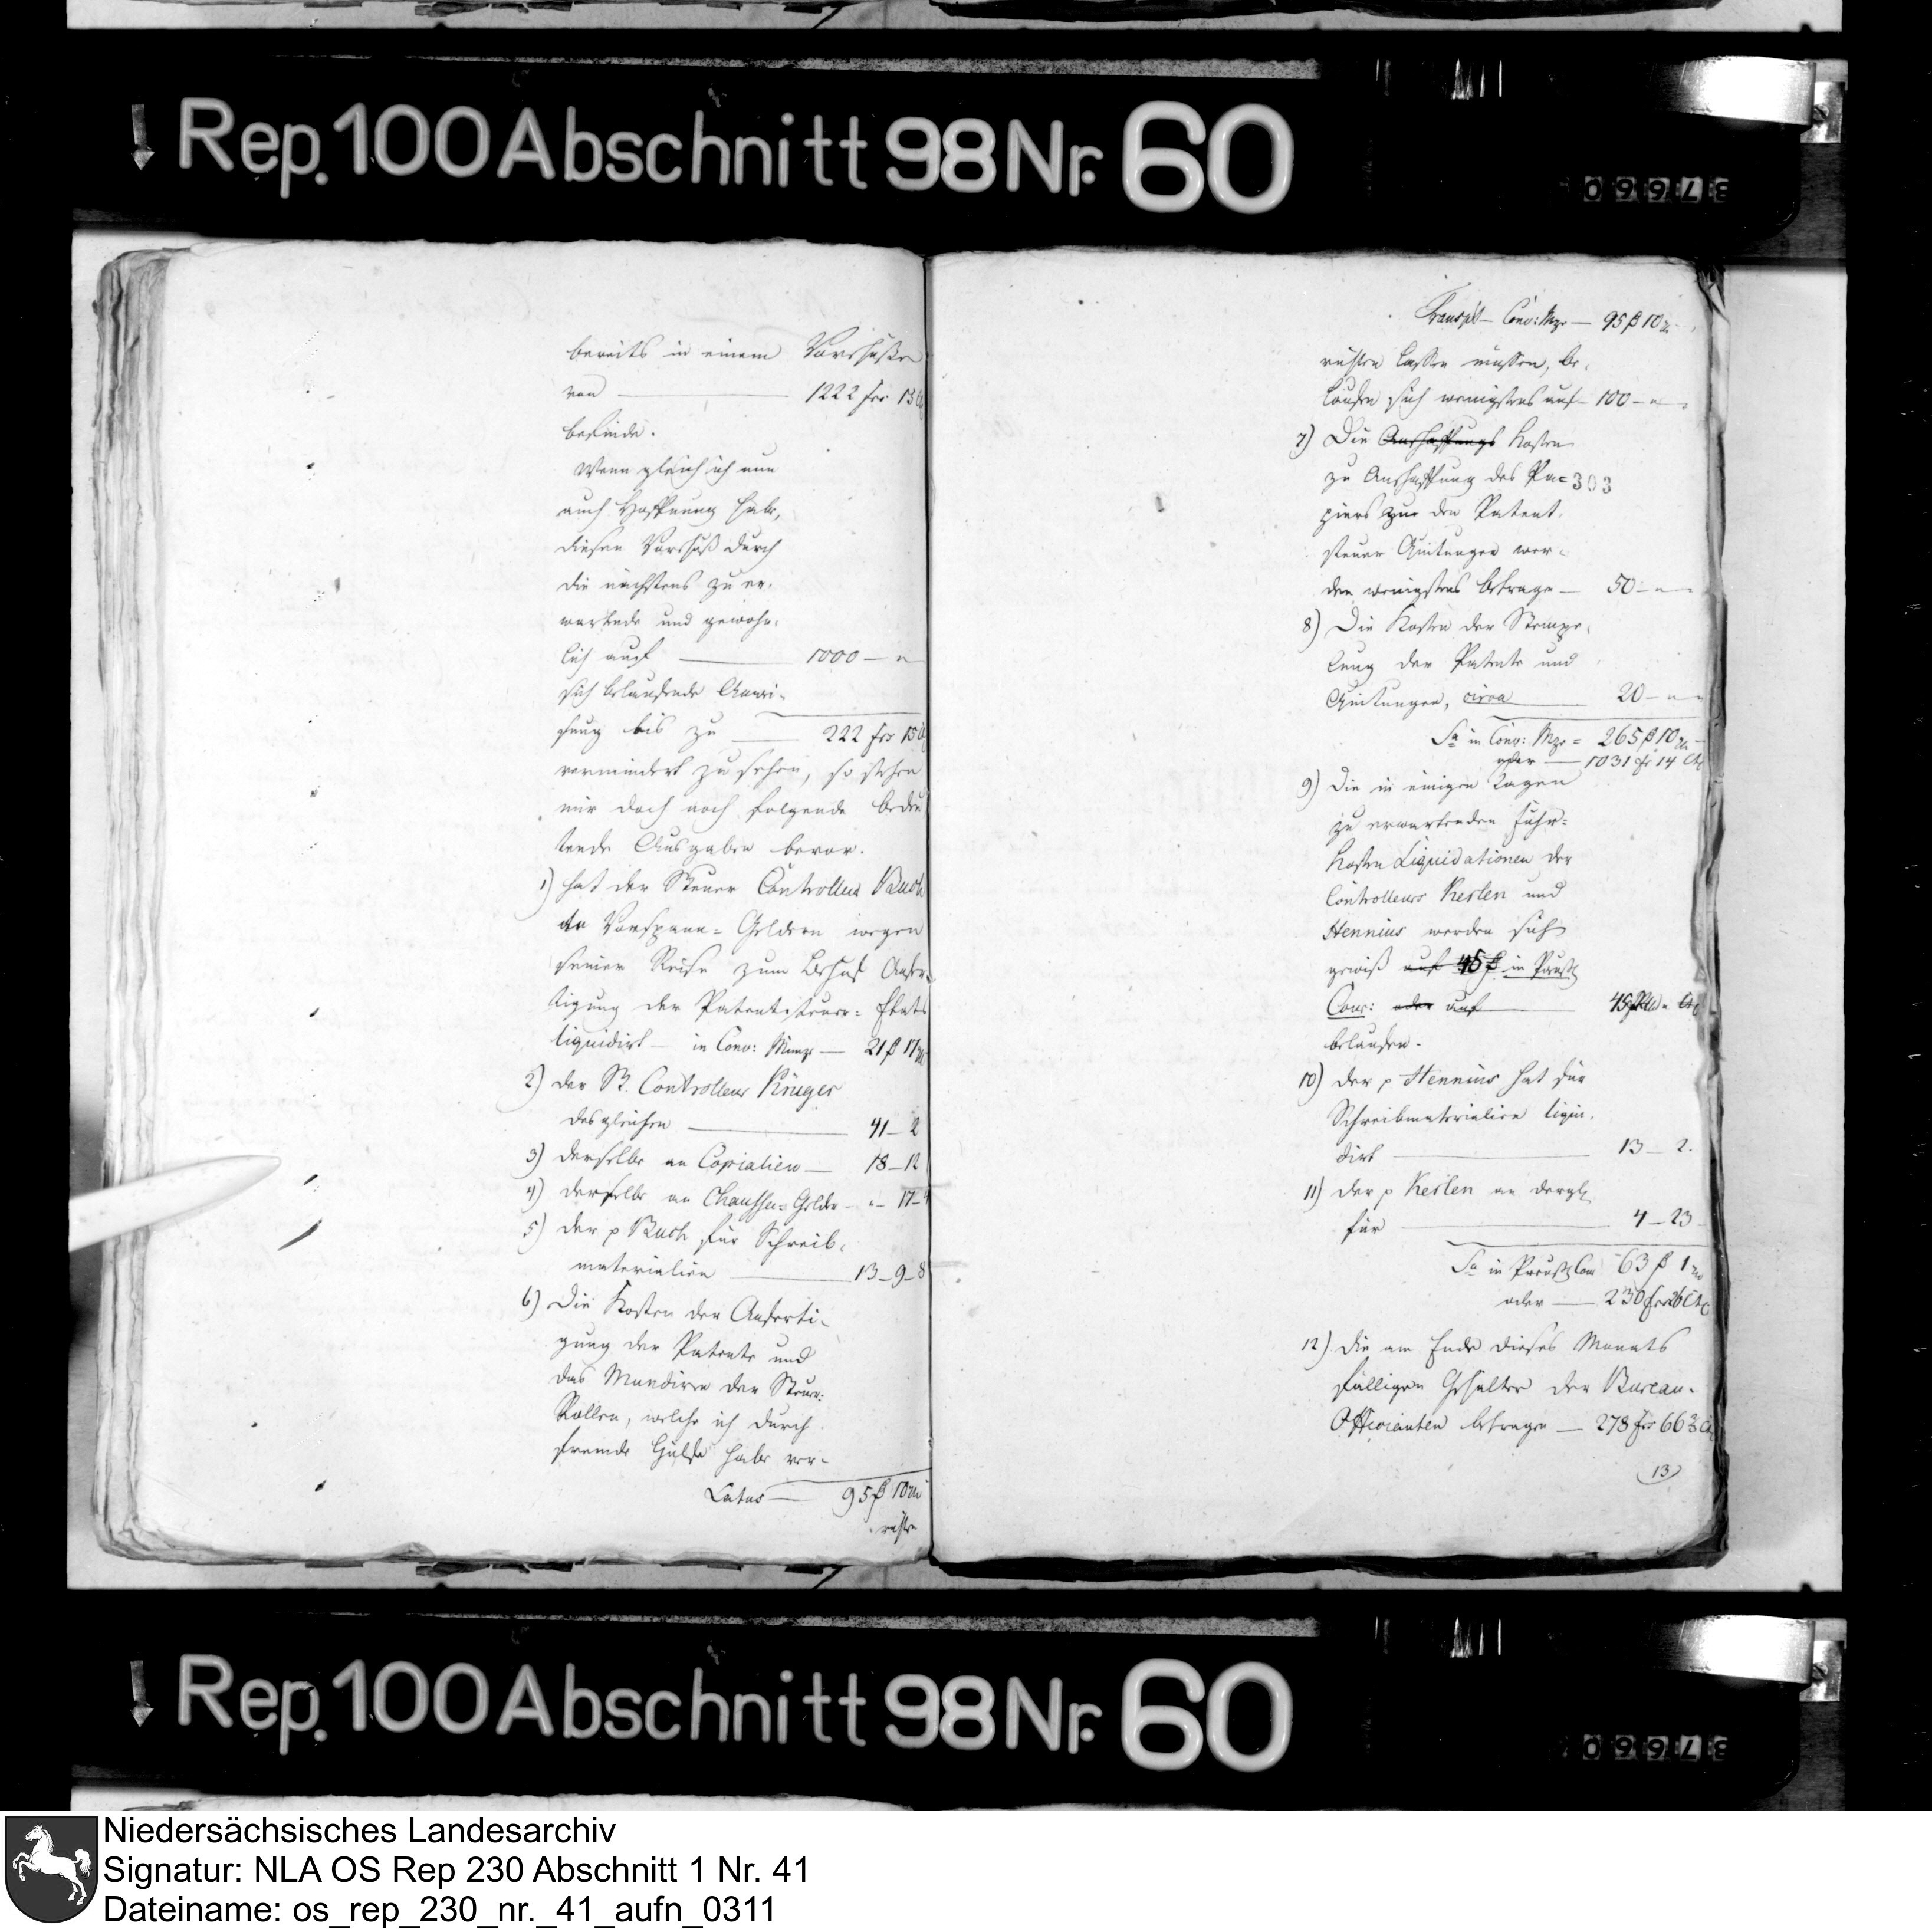 Rep. 100 Abschnitt 98 Nr. 60
09978
bereits in einem Vorschusse
von — 1222 frs 15 C
befinde.
Wenn gleich ich nun
auch Hoffnung habe,
diesen Vorschuß durch
die nächstens zu er-
wartende und gewöhn-
lich auf — 1000 — "
sich belaufende Anwei-
sung bis zu — 222 frs 15 C
vermindert zu sehen, so stehen
mir doch noch folgende bedeu
tende Ausgaben bevor.
1) hat der Steuer Controlleur Busch
an Vorspann-Geldern wegen
seiner Reise zum Behuf Anfer-
tigung der Patentsteuer-Etats
liquidirt — in Conv: Münze — 21 β 17
2) der St. Controlleur Krüger
desgleichen — 41 — 2
3) derselbe an Copialien — 18 — 12
4) derselbe an Chaussee-Gelder — " — 17 — 4
5) der p Busch für Schreib-
materialien — 13 — 9 — 8
6) Die Kosten der Anferti-
gung der Patente und
das Mundiren der Steuer-
Rollen, welche ich durch
fremde Hülfe habe ver-
Latus — 95 β 10
Transpt — Conv: Mze — 95 β 10
richten lassen müssen, be-
laufen sich wenigstens auf — 100 — "
7) Die Anschaffungs Kosten
zu Anschaffung des Pa-
303
piers zur den Patent-
steuer Quitungen wer-
den wenigstens betragen — 50 — "
8) Die Kosten der Stempe-
lung der Patente und
Quitungen, circa — 20 — " "
Sa in Conv: Mze = 265 β 10
oder — 1031 fr 14 Ct
9) Die in einigen Tagen
zu erwartenden Fuhr-
kosten Liquidationen der
Controlleurs Kerlen und
Hennius werden sich
gewiß auf 45 β in Preuß
Cour: oder auf — 45
belaufen.
10) der p Hennius hat für
Schreibmaterialien liqui-
dirt — 13 — 2.
11) der p Kerlen an dergl
für — 4 — 23
Sa in Preuß Cour 63 β 1
oder — 230 frs 26 Ct
12) Die am Ende dieses Monats
fälligen Gehalter der Bureau-
Officianten betragen — 278 frs 66 3 Ct
13)
Rep. 100 Abschnitt 98 Nr. 60
Niedersächsisches Landesarchiv
Signatur: NLA OS Rep 230 Abschnitt 1 Nr. 41
Dateiname: os_rep_230_nr._41_aufn_0311